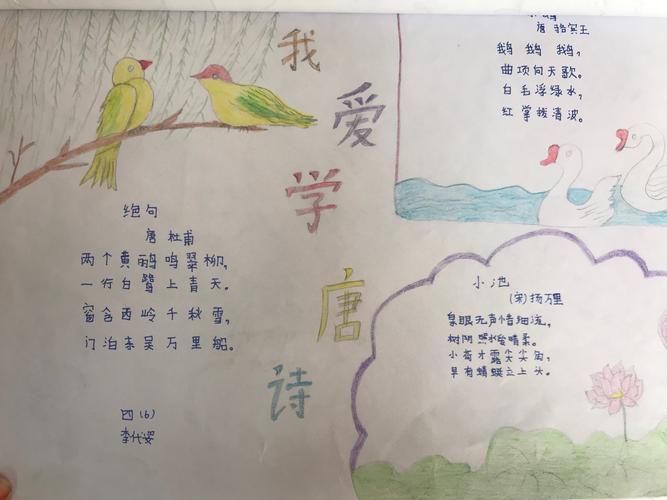 我
爱
学
唐
诗
绝句
唐 杜甫
两个黄鹂鸣翠柳，
一行白鹭上青天。
窗含西岭千秋雪，
门泊东吴万里船。
四（6）
李代姿
唐 骆宾王
鹅 鹅 鹅，
曲项向天歌。
白毛浮绿水，
红掌拨清波。
小池
（宋）杨万里
泉眼无声惜细流，
树阴照水爱晴柔。
小荷才露尖尖角，
早有蜻蜓立上头。